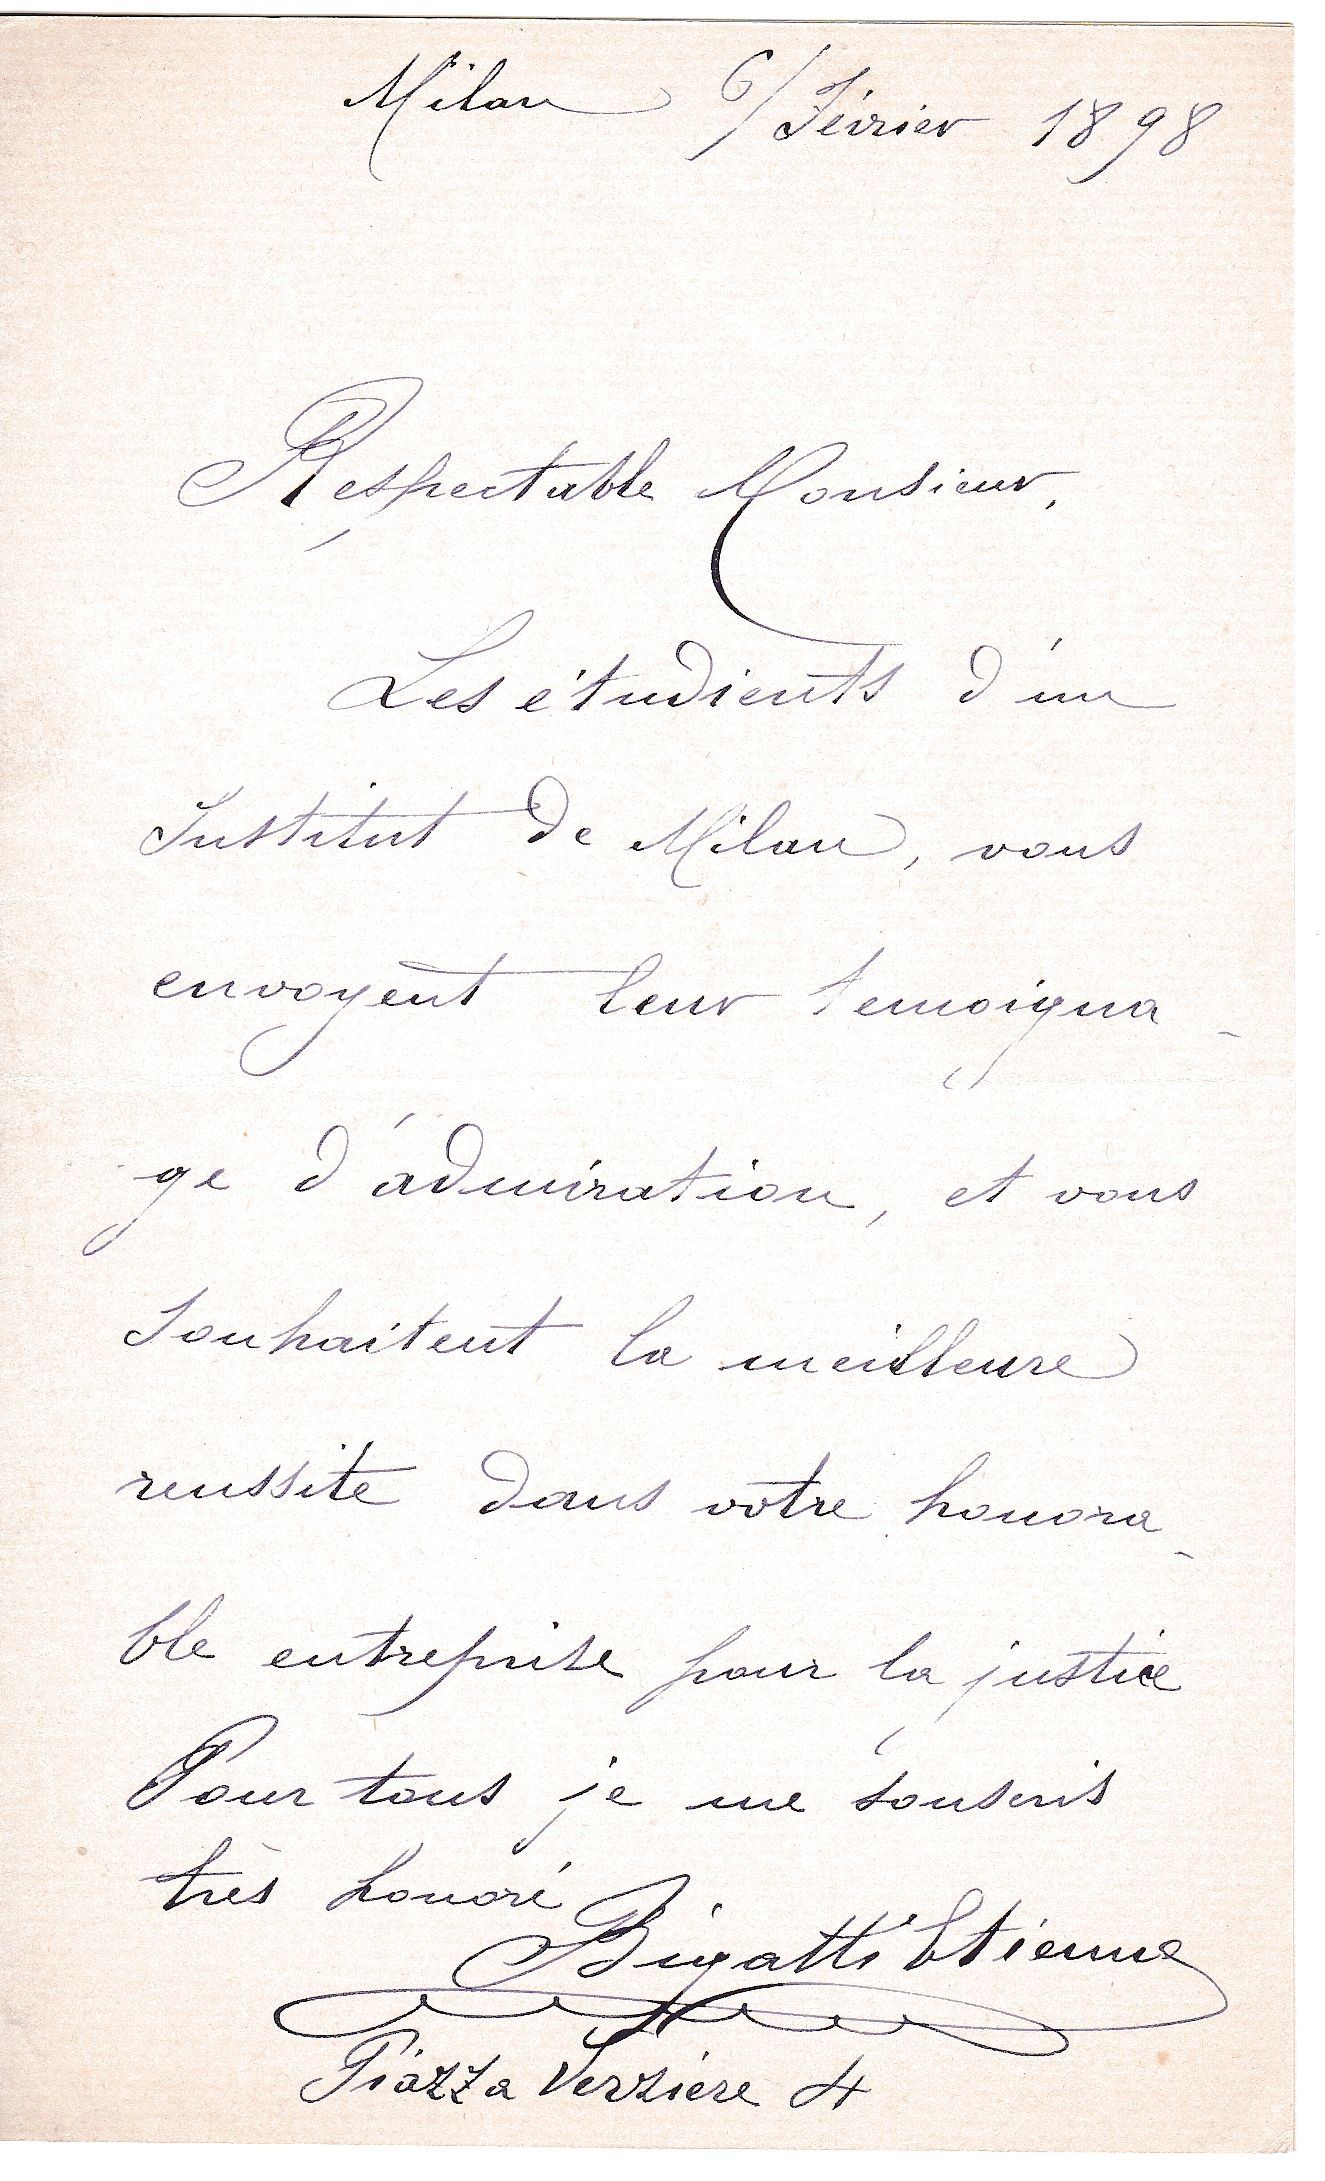 Milan 6/Févrièr 1898
Respectable Monsieur,
Les étudients d'un
Institut de Milan, vous
envoyent leur temoigna-
ge d'admiration, et vous
souhaitent la meilleure
reussite dans votre honora-
ble entreprise pour la justice
Pour tous je me souscris
très honoré
Bigatti Etienne
Piazza Verziere 4